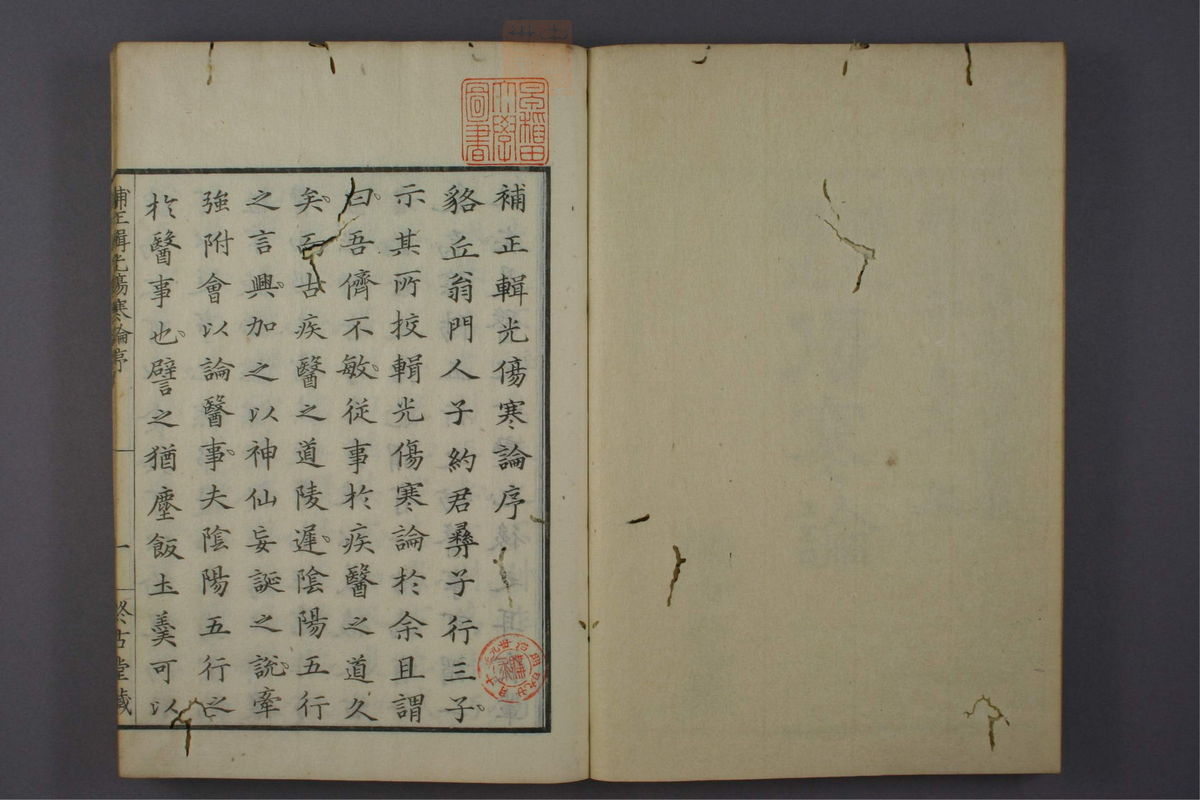 補正輯光傷寒論序
貉丘翁門人子約君彝子行三子。
示其所挍輯光傷寒論於余且謂
曰。吾儕不敏。從事於疾醫之道久
矣。而古疾醫之道陵遲。陰陽五行
之言興。加之以神仙妄誕之說。牽
強附會以論醫事。夫陰陽五行之
於醫事也。譬之猶塵飯土羹可以
補正輯光傷寒論序
一
終古堂藏
早稻田
大學
圖書